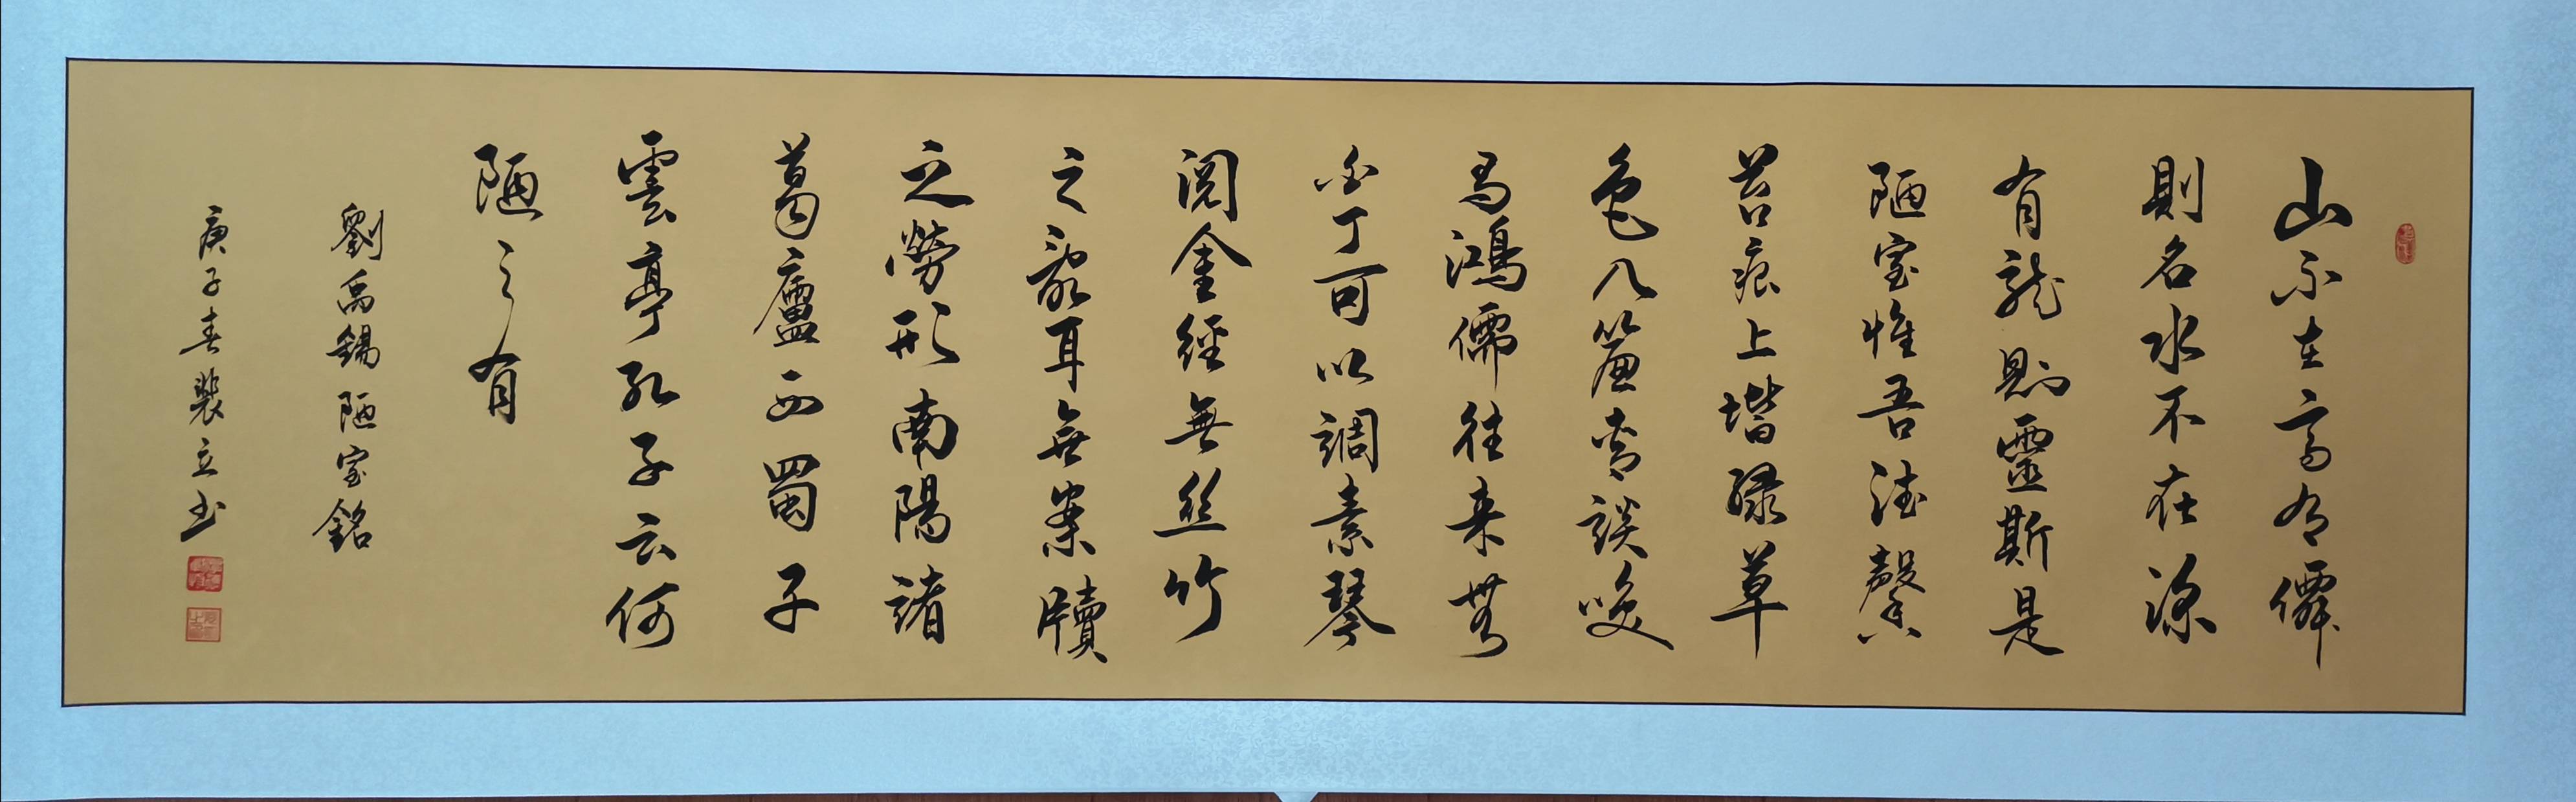 山不在高有僊
則名水不在深
有龍則靈斯是
陋室惟吾德馨
苔痕上堦緑草
色入簾青談咲
有鴻儒往来無
白丁可以調素琴
閱金經無丝竹
之亂耳無案牘
之勞形南陽諸
葛廬西蜀子
雲亭孔子云何
陋之有
劉禹錫陋室銘
庚子春裴立书